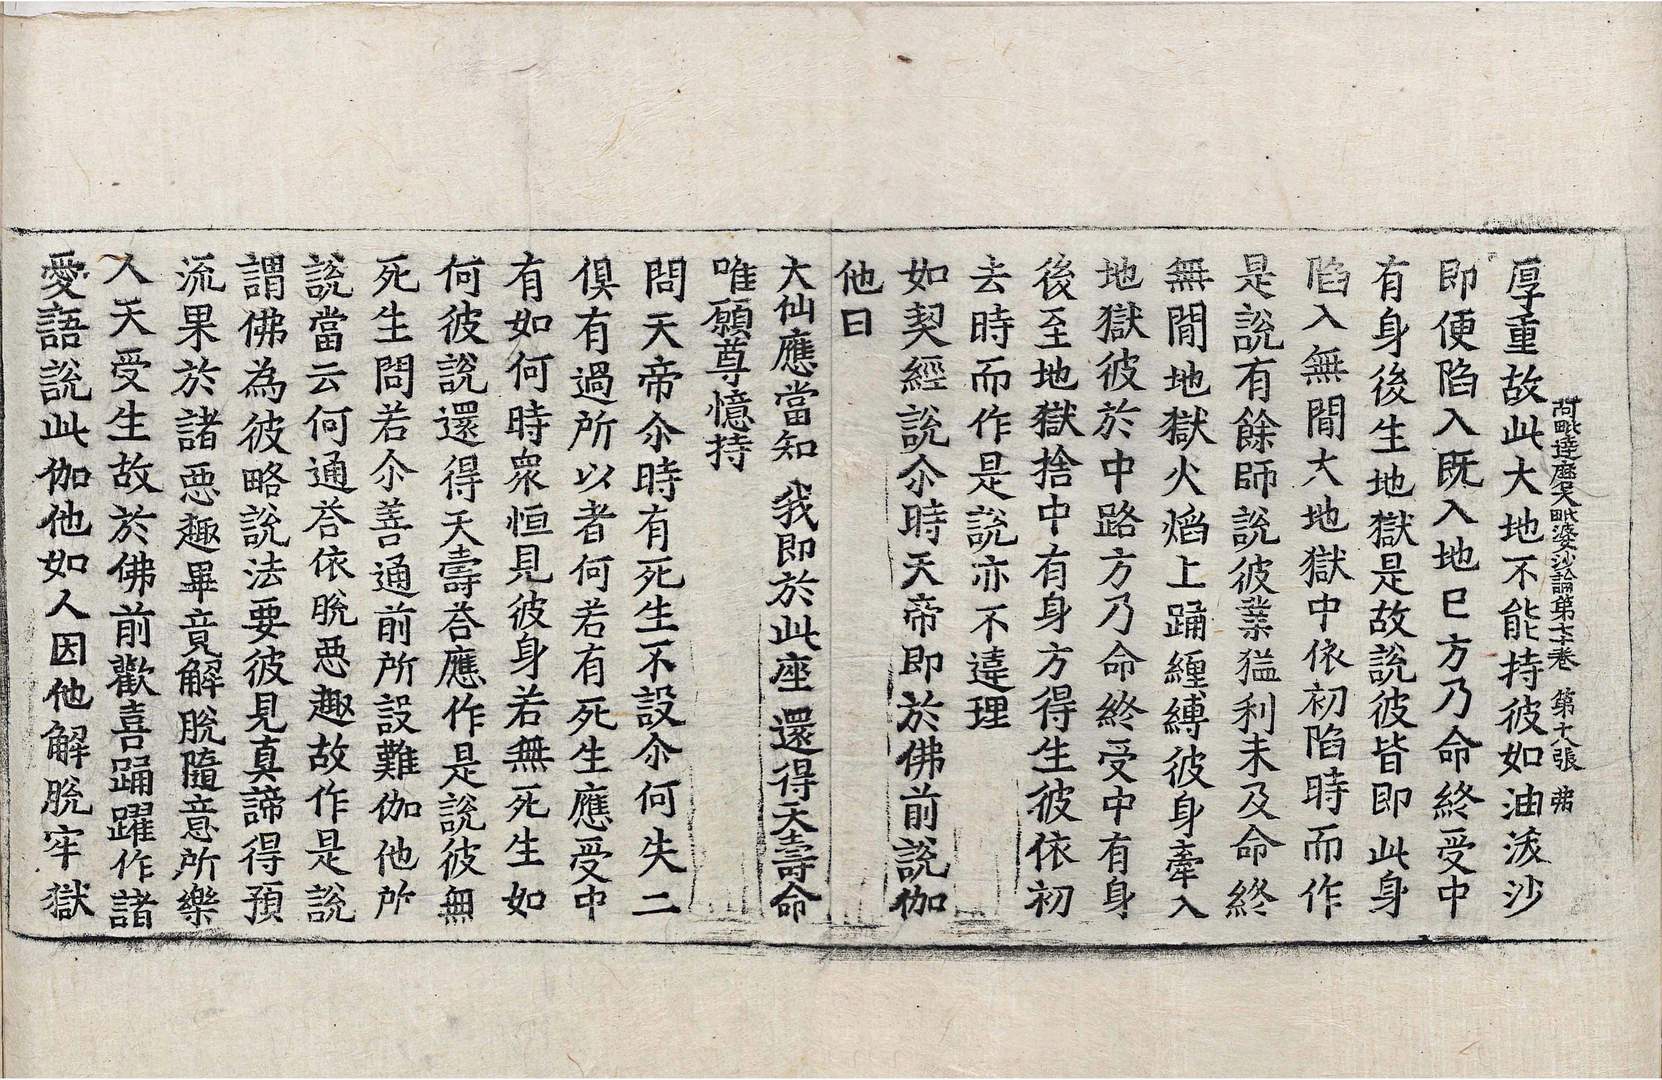 阿毗達磨大毗婆沙論第七十卷　第十八張　弗
厚重故此大地不能持彼如油沷沙
即便陷入既入地已方乃命終受中
有身後生地獄是故說彼皆即此身
陷入無間大地獄中依初陷時而作
是說有餘師說彼業猛利未及命終
無間地獄火焰上踊纏縛彼身牽入
地獄彼於中路方乃命終受中有身
後至地獄捨中有身方得生彼依初
去時而作是說亦不違理
如契經說尒時天帝即於佛前說伽
他曰
大仙應當知　我即於此座　還得天壽命
唯願尊憶持
問天帝尒時有死生不設尒何失二
俱有過所以者何若有死生應受中
有如何時衆恒見彼身若無死生如
何彼說還得天壽荅應作是說彼無
死生問若尒善通前所設難伽他所
說當云何通荅依脫惡趣故作是說
謂佛為彼略說法要彼見真諦得預
流果於諸惡趣畢竟解脫隨意所樂
人天受生故於佛前歡喜踊躍作諸
愛語說此伽他如人因他解脫牢獄